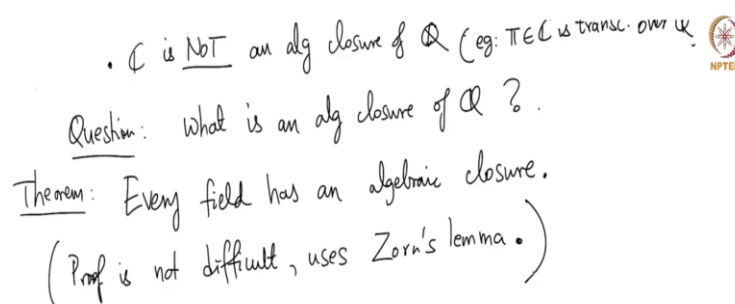 • ℂ is NOT an alg closure of ℚ (eg: π∈ℂ is transc. over ℚ
NPTEL
Question: What is an alg closure of ℚ ?.
Theorem: Every field has an algebraic closure.
(Proof is not difficult, uses Zorn's lemma.)